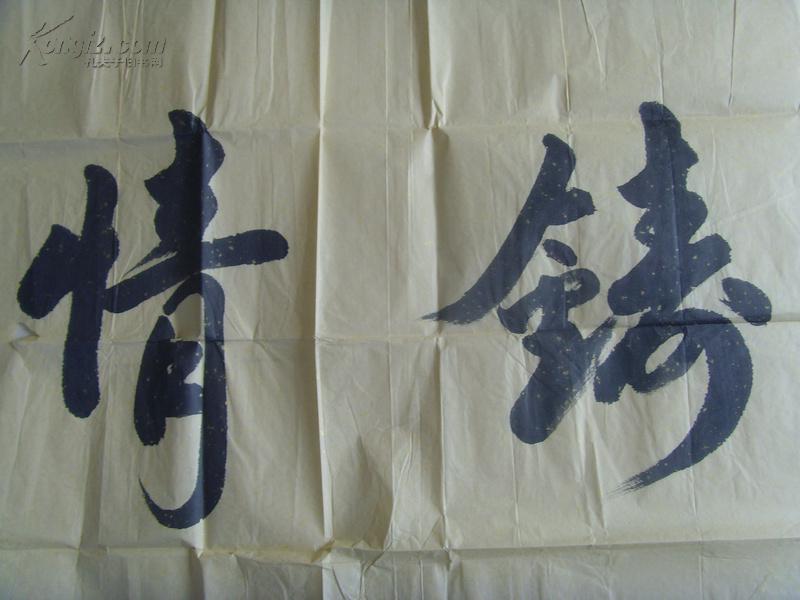 Kongfz.com
孔夫子旧书网
铸情